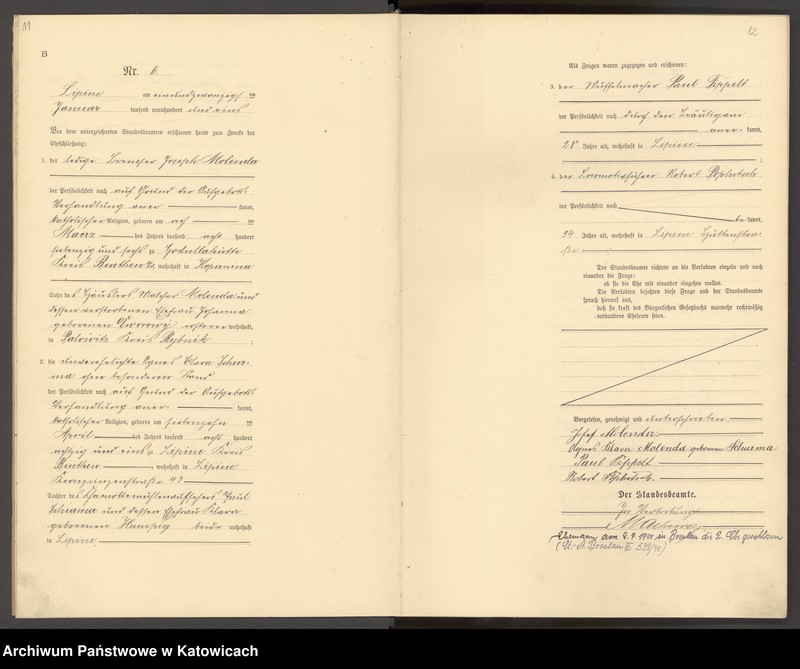 11
B
Nr. 6.
Lipine am einundzwanzigsten
Januar tausend neunhundert und eins
Vor dem unterzeichneten Standesbeamten erschienen heute zum Zwecke der
Eheschließung:
1. der ledige Joseph Molenda
der Persönlichkeit nach auf Grund der Aufgebots-
Verhandlung aner kannt,
katholischer Religion, geboren am
Maerz des Jahres tausend acht hundert
siebenzig und sechs zu Godullahütte
Kreis Beuthen, wohnhaft in Kopanina
Sohn des Häuslers Melcher Molenda und
dessen verstorbenen Ehefrau Johanna
geborenen wohnhaft
in Kreis Rybnik ;
2. die unverehelichte Agnes Clara Schur-
ma ohne besonderen Stand
der Persönlichkeit nach auf Grund der Aufgebots-
Verhandlung aner kannt,
katholischer Religion, geboren am siebenzehn ten
April des Jahres tausend acht hundert
achtzig und eins zu Lipine Kreis
Beuthen, wohnhaft in Lipine
Kronprinzenstraße 43
Tochter des Paul
Schurma und dessen Ehefrau Klara
geborenen beide wohnhaft
in Lipine.
12
Als Zeugen waren zugezogen und erschienen:
3. der Muffelmacher Paul Tippelt
der Persönlichkeit nach durch den Bräutigam
aner kannt,
28 Jahre alt, wohnhaft in Lipine
;
4. der Locomotivführer Robert
der Persönlichkeit nach
be kannt,
34 Jahre alt, wohnhaft in Lipine Hüttenstra-
ße
Der Standesbeamte richtete an die Verlobten einzeln und nach
einander die Frage:
ob sie die Ehe mit einander eingehen wollen.
Die Verlobten bejahten diese Frage und der Standesbeamte
sprach hierauf aus,
daß sie kraft des Bürgerlichen Gesetzbuchs nunmehr rechtmäßig
verbundene Eheleute seien.
Vorgelesen, genehmigt und unterschrieben
Josef Molenda.
Agnes Klara Molenda geborene Schurma
Paul Tippelt
Robert
Der Standesbeamte.
In Vertretung
Ehemann am in Breslau die 2. Ehe geschlossen
(St.-A. Breslau
Archiwum Państwowe w Katowicach